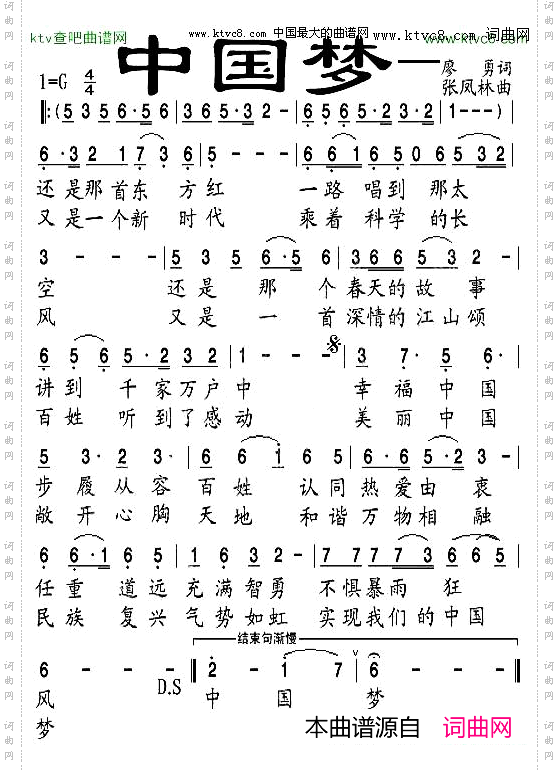 www.ktvc8.com 中国最大的曲谱网 www.ktvc8.com 词曲网
ktv查吧曲谱网
www.ktvc8.com
中国梦
廖 勇词
张凤林曲
1=G 4/4
‖:(5 3 5 6·5 6 | 5 3 2 1·2 3 | 6 5 6 5·3 2·3 2 | 1 - - - ) |
6·3 2 1 7·3 | 5 - - | 6 6 1 6 5 0 6 5 3 2 |
还是那首东 方红 一路 唱到 那太
又是一个新 时代 乘着 科学 的长
3 - - - | 5 3 5 6·5 6 | 3 6 6 6 5 3 2 - |
空 还是 那 个 春天的 故 事
风 又是 一 首 深情的 江山颂
6 5 6 5·2 3 2 | 1 - - - | 3 7· 5 6· |
讲到 千家万户中 幸 福 中 国
百姓 听到了感动 美 丽 中 国
5 3· 2 3· | 6 6 1 - | 6·6 5·2 3 - |
步 履 从 容 百姓 认同 热 爱由 衷
敞 开 心 胸 天 地 和谐 万 物相 融
6 6·1 6 5 | 1 6 3 2 - | 7 7 7 7 3 6 6 5 |
任重 道远 充满智勇 不惧暴雨 狂
民族 复兴 气势如虹 实现我们的中国
结束句渐慢
6 - - - :‖ 2 - 1 7 | 6 - - - ‖
风 D.S 中 国 梦
梦
本曲谱源自 词曲网
词曲网